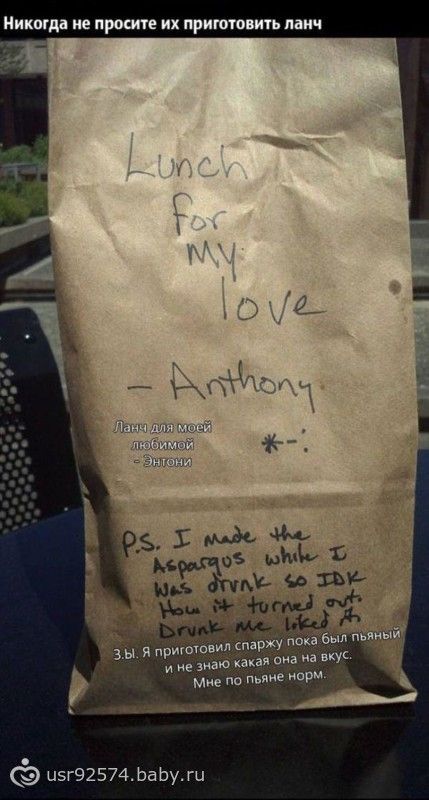 Никогда не просите их приготовить ланч
Lunch
for
My
love
- Anthony
Ланч для моей
любимой
- Энтони
*-:
P.S. I made the
Aspargus while I
was drunk so IDK
How it turned out.
Drunk me liked it
З.Ы. Я приготовил спаржу пока был пьяный
и не знаю какая она на вкус.
Мне по пьяне норм.
usr92574.baby.ru